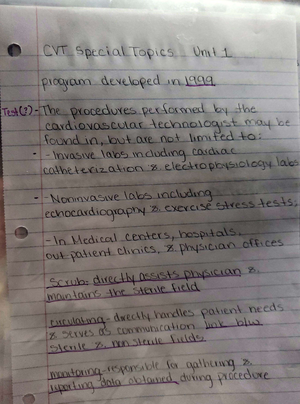 CVT Special Topics Unit 1
program developed in 1999
Test(?) - The procedures performed by the
cardiovascular technologist may be
found in, but are not limited to:
- Invasive labs including cardiac
catheterization & electrophysiology labs
- Noninvasive labs including
echocardiography & exercise stress tests
- In Medical centers, hospitals,
out patient clinics, & physician offices
Scrub- directly assists physician &
maintains the sterile field
circulating- directly handles patient needs
& serves as communication link b/w
sterile & non sterile fields.
monitoring- responsible for gathering &
reporting data obtained during procedure